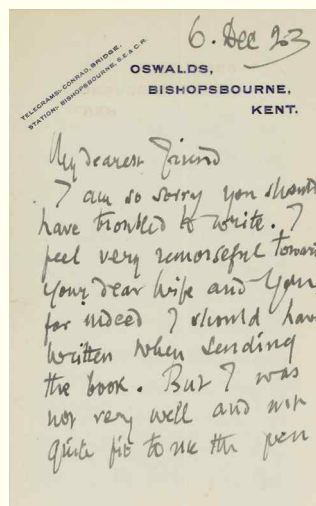 6. Dec 23
TELEGRAMS:- CONRAD, BRIDGE.
STATION:- BISHOPSBOURNE, S.E. & C.R.
OSWALDS,
BISHOPSBOURNE,
KENT.
My dearest Friend
I am so sorry you should
have troubled to write. I
feel very remorseful toward
your dear wife and you
for indeed I should have
written when sending
the book. But I was
not very well and not
quite fit to use the pen